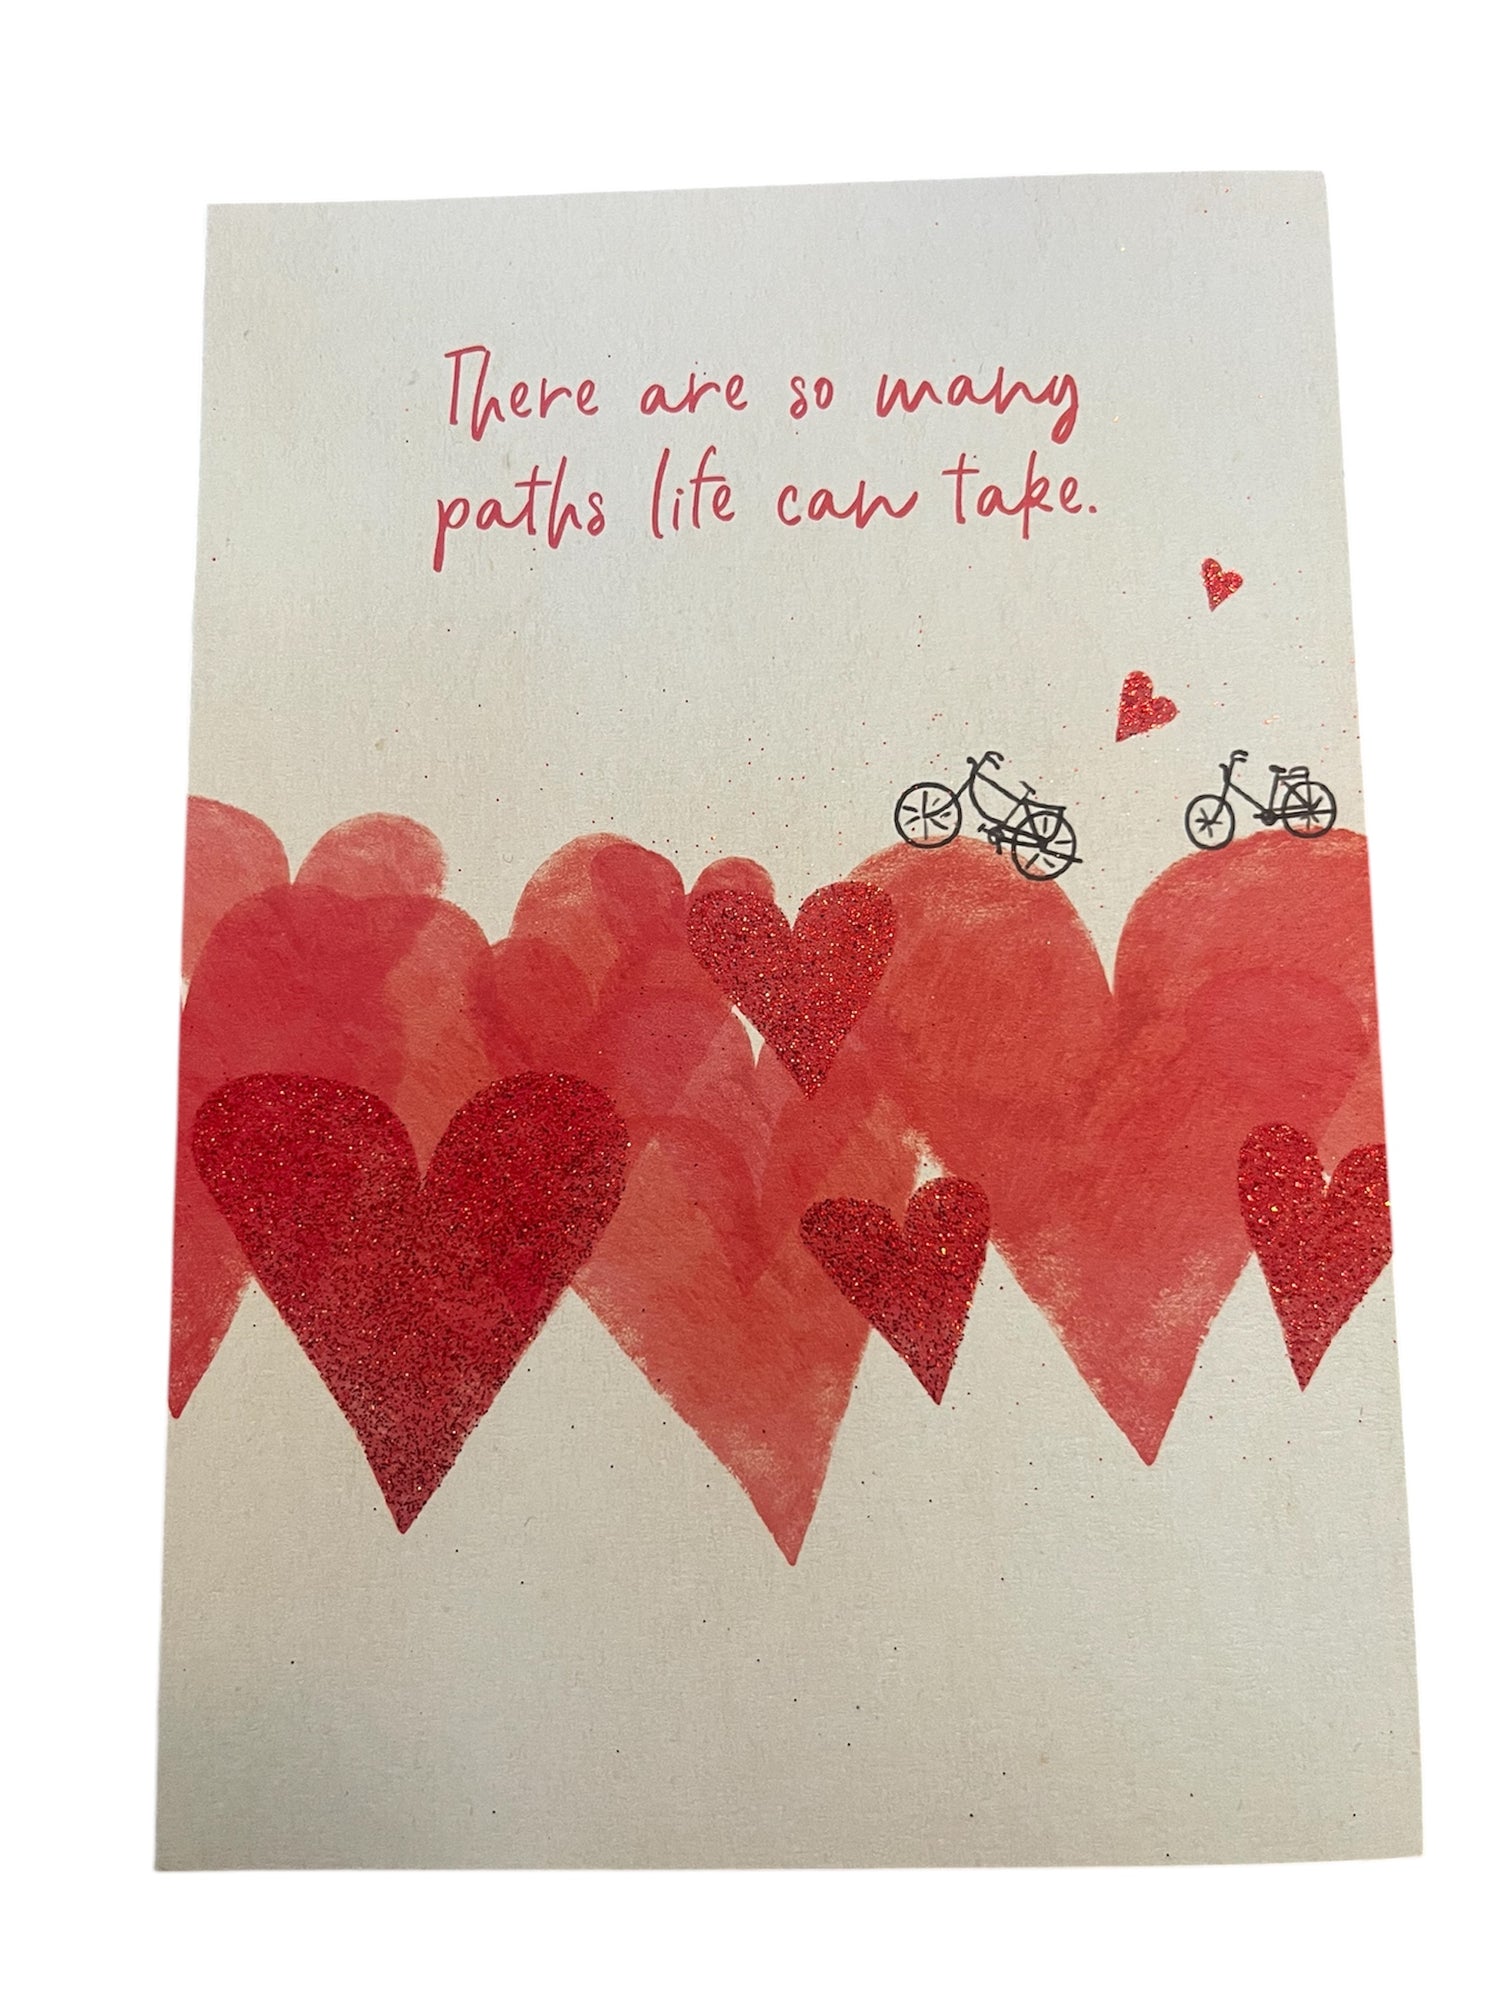 There are so many
paths life can take.